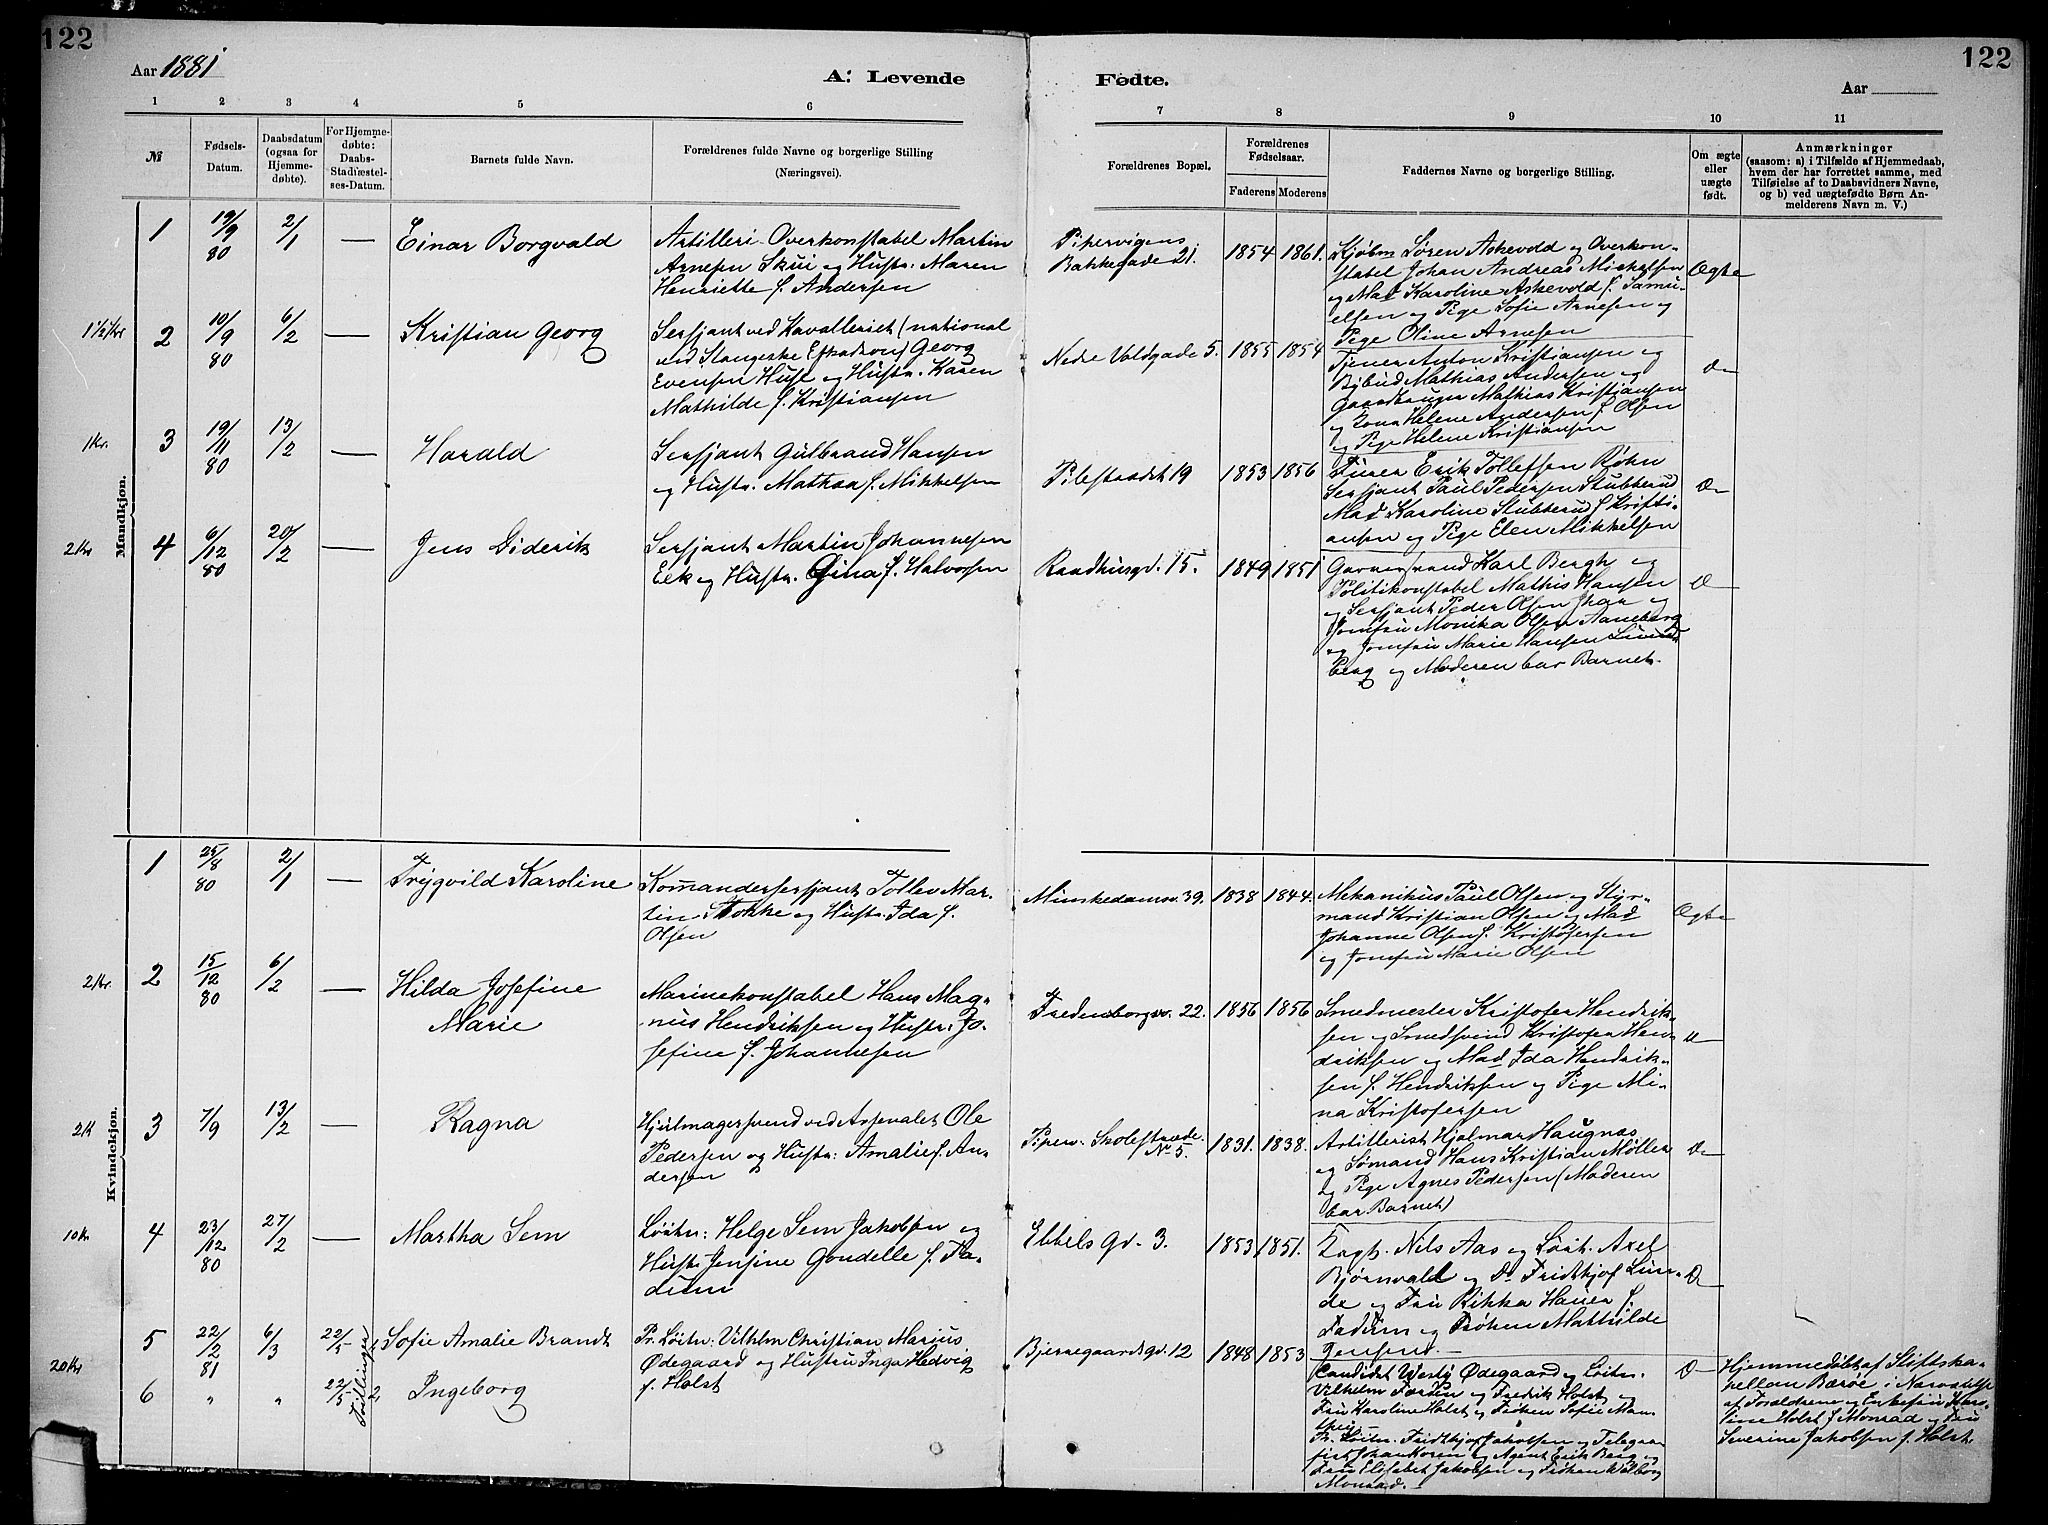 122
122
Aar 1881
A: Levende
Fødte.
Aar
1 2 3 4 5 6 7 8 9 10 11
№
Fødsels-
Datum.
Daabsdatum
(ogsaa for
Hjemme-
døbte).
For Hjemme-
døbte:
Daabs-
Stadfæstel-
ses-Datum.
Barnets fulde Navn.
Forældrenes fulde Navne og borgerlige Stilling
(Næringsvei).
Forældrenes Bopæl.
Forældrenes
Fødselsaar.
Faderens Moderens
Faddernes Navne og borgerlige Stilling.
Om ægte
eller
uægte
født.
Anmærkninger
(saasom: a) i Tilfælde af Hjemmedaab,
hvem der har forrettet samme, med
Tilføielse af to Daabsvidners Navne,
og b) ved uægtefødte Børn An-
melderens Navn m. V.)
Mandkjøn.
1 19/9 80 2/1 — Einar Borgvald
Artilleri-Overkonstabel Martin
Arnesen Skui og Hustr. Maren
Henriette f. Andersen
Pipervigens
Bakkegade 21. 1854 1861.
Kjøbm Søren Askevold og Overkon-
stabel Johan Andreas Michelsen
og Mad Karoline Askevold f. Samu-
elsen og Pige Sofie Arnesen og
Pige Oline Arnesen
Ægte
1½ Kr
2 10/9 80 6/2 — Kristian Georg
Sersjant ved Kavalleriet (national
ved Stangeske Eskadron) Georg
Evensen Huse og Hustr. Karen
Mathilde f. Kristiansen
Nedre Voldgade 5. 1855 1854
Tjener Anton Kristiansen og
Bybud Mathias Andersen og
Gaardbruger Mathias Kristiansen
og Kona Helene Andersen f. Olsen
og Pige Helene Kristiansen
1 Kr.
3 19/11 80 13/2 — Harald
Sersjant Gulbrand Hansen
og Hustr. Mathea f. Mikkelsen
Pilestrædet 19 1853 1856
Furer Erik Tollefsen Røhn
Sersjant Paul Pedersen Stubberud
Mad Karoline Stubberud f. Kristi-
ansen og Pige Elen Mikkelsen
2 Kr
4 6/12 80 20/2 — Jens Diderik
Sersjant Martin Johannesen
Eek og Hustr. Gina f. Halvorsen
Raadhusgd. 15. 1849 1851
Garversvend Karl Bergh og
Politikonstabel Mathis Hansen
og Sersjant Peder Olsen og
Jomfru Monika Olsen Aaneberg
og Jomfru Marie Hansen
berg og Moderen bar Barnet.
Kvindekjøn.
1 25/8 80 2/1 — Trygvild Karoline
Komandersersjant Tollev Mar-
tin Stokke og Hustr. Ida f.
Olsen
Munkedamsv. 39. 1838 1844.
Mekanikus Paul Olsen og Styr-
mand Kristian Olsen og Mad
Johanne Olsen f. Kristofersen
og Jomfru Marie Olsen
Ægte
2 Kr.
2 15/12 80 6/2 — Hilda Josefine
Marie
Marinekonstabel Hans Mag-
nus Hendriksen og Hustr: Jo-
sefine f. Johannesen
Fredensborgv. 22. 1856 1856
Smedmester Kristofer Hendrik-
sen og Smedsvend Kristofer Hen-
driksen og Mad Ida Hendrik-
sen f. Hendriksen og Pige Mi-
na Kristofersen
2 K
3 7/9 13/2 — Ragna
Hjulmagersvend ved Arsenalet Ole
Pedersen og Hustr: Amalie f. An-
dersen
Piperv. Skolestræde
№ 5. 1831. 1838.
Artillerist Hjalmar Haugnæs
og Sømand Hans Kristian Møller
og Pige Agnes Pedersen (Moderen
bar Barnet)
10 Kr
4 23/12 80 27/2 — Martha Sem
Løitn: Helge Sem Jakobsen og
Hustr Jensine Gondelle f. Fa-
dum
Ebbels Gd. 3. 1853 1851.
Kapt. Nils Aas og Løit. Axel
Bjørnvald og Do Fridthjof Lun-
de og Fru Rikka Hauer f.
Fadum og Frøken Mathilde
Jensen.
20 Kr
5 22/2 81 6/3 22/5 Sofie Amalie Brandt
6 " " 22/5 Ingeborg
Tvillinger
Pr. Løitn: Vilhelm Christian Marius
Ødegaard og Hustru Inga Hedvig
f. Holst
Bjernegaardsgd. 12 1848 1853
Candidat Ødegaard og Løitn.
Vilhelm og Fredrik Holst og
Fru Karoline Holst og Frøken Sofie
Pr. Løitn. Fridthjof Jakobsen og Telegra-
fist Johan Koren og Agent Erik Berg og
Fru Elisabet Jakobsen og Frøken Walborg
Monrad.
Hjemmedøbt af Stiftska-
pellan Barøe i Nærværelse
af Forældrene og Enkefru Karo-
line Holst f. Monrad og Fru
Severine Jakobsen f. Holst.